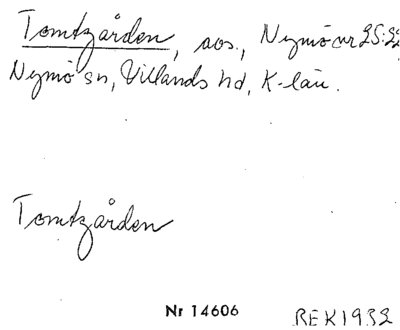 Tomtgården, avs., Nymö nr 25:22
Nymö sn, Villands hd, K-län.
Tomtgården
Nr 14606
REK1932